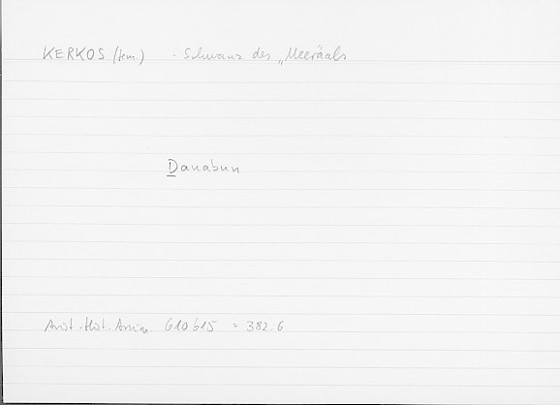 KERKOS (fem.) - Schwanz des „Meeraals
Danabun
Arist. Hist. Anim. 610b15 = 382.6